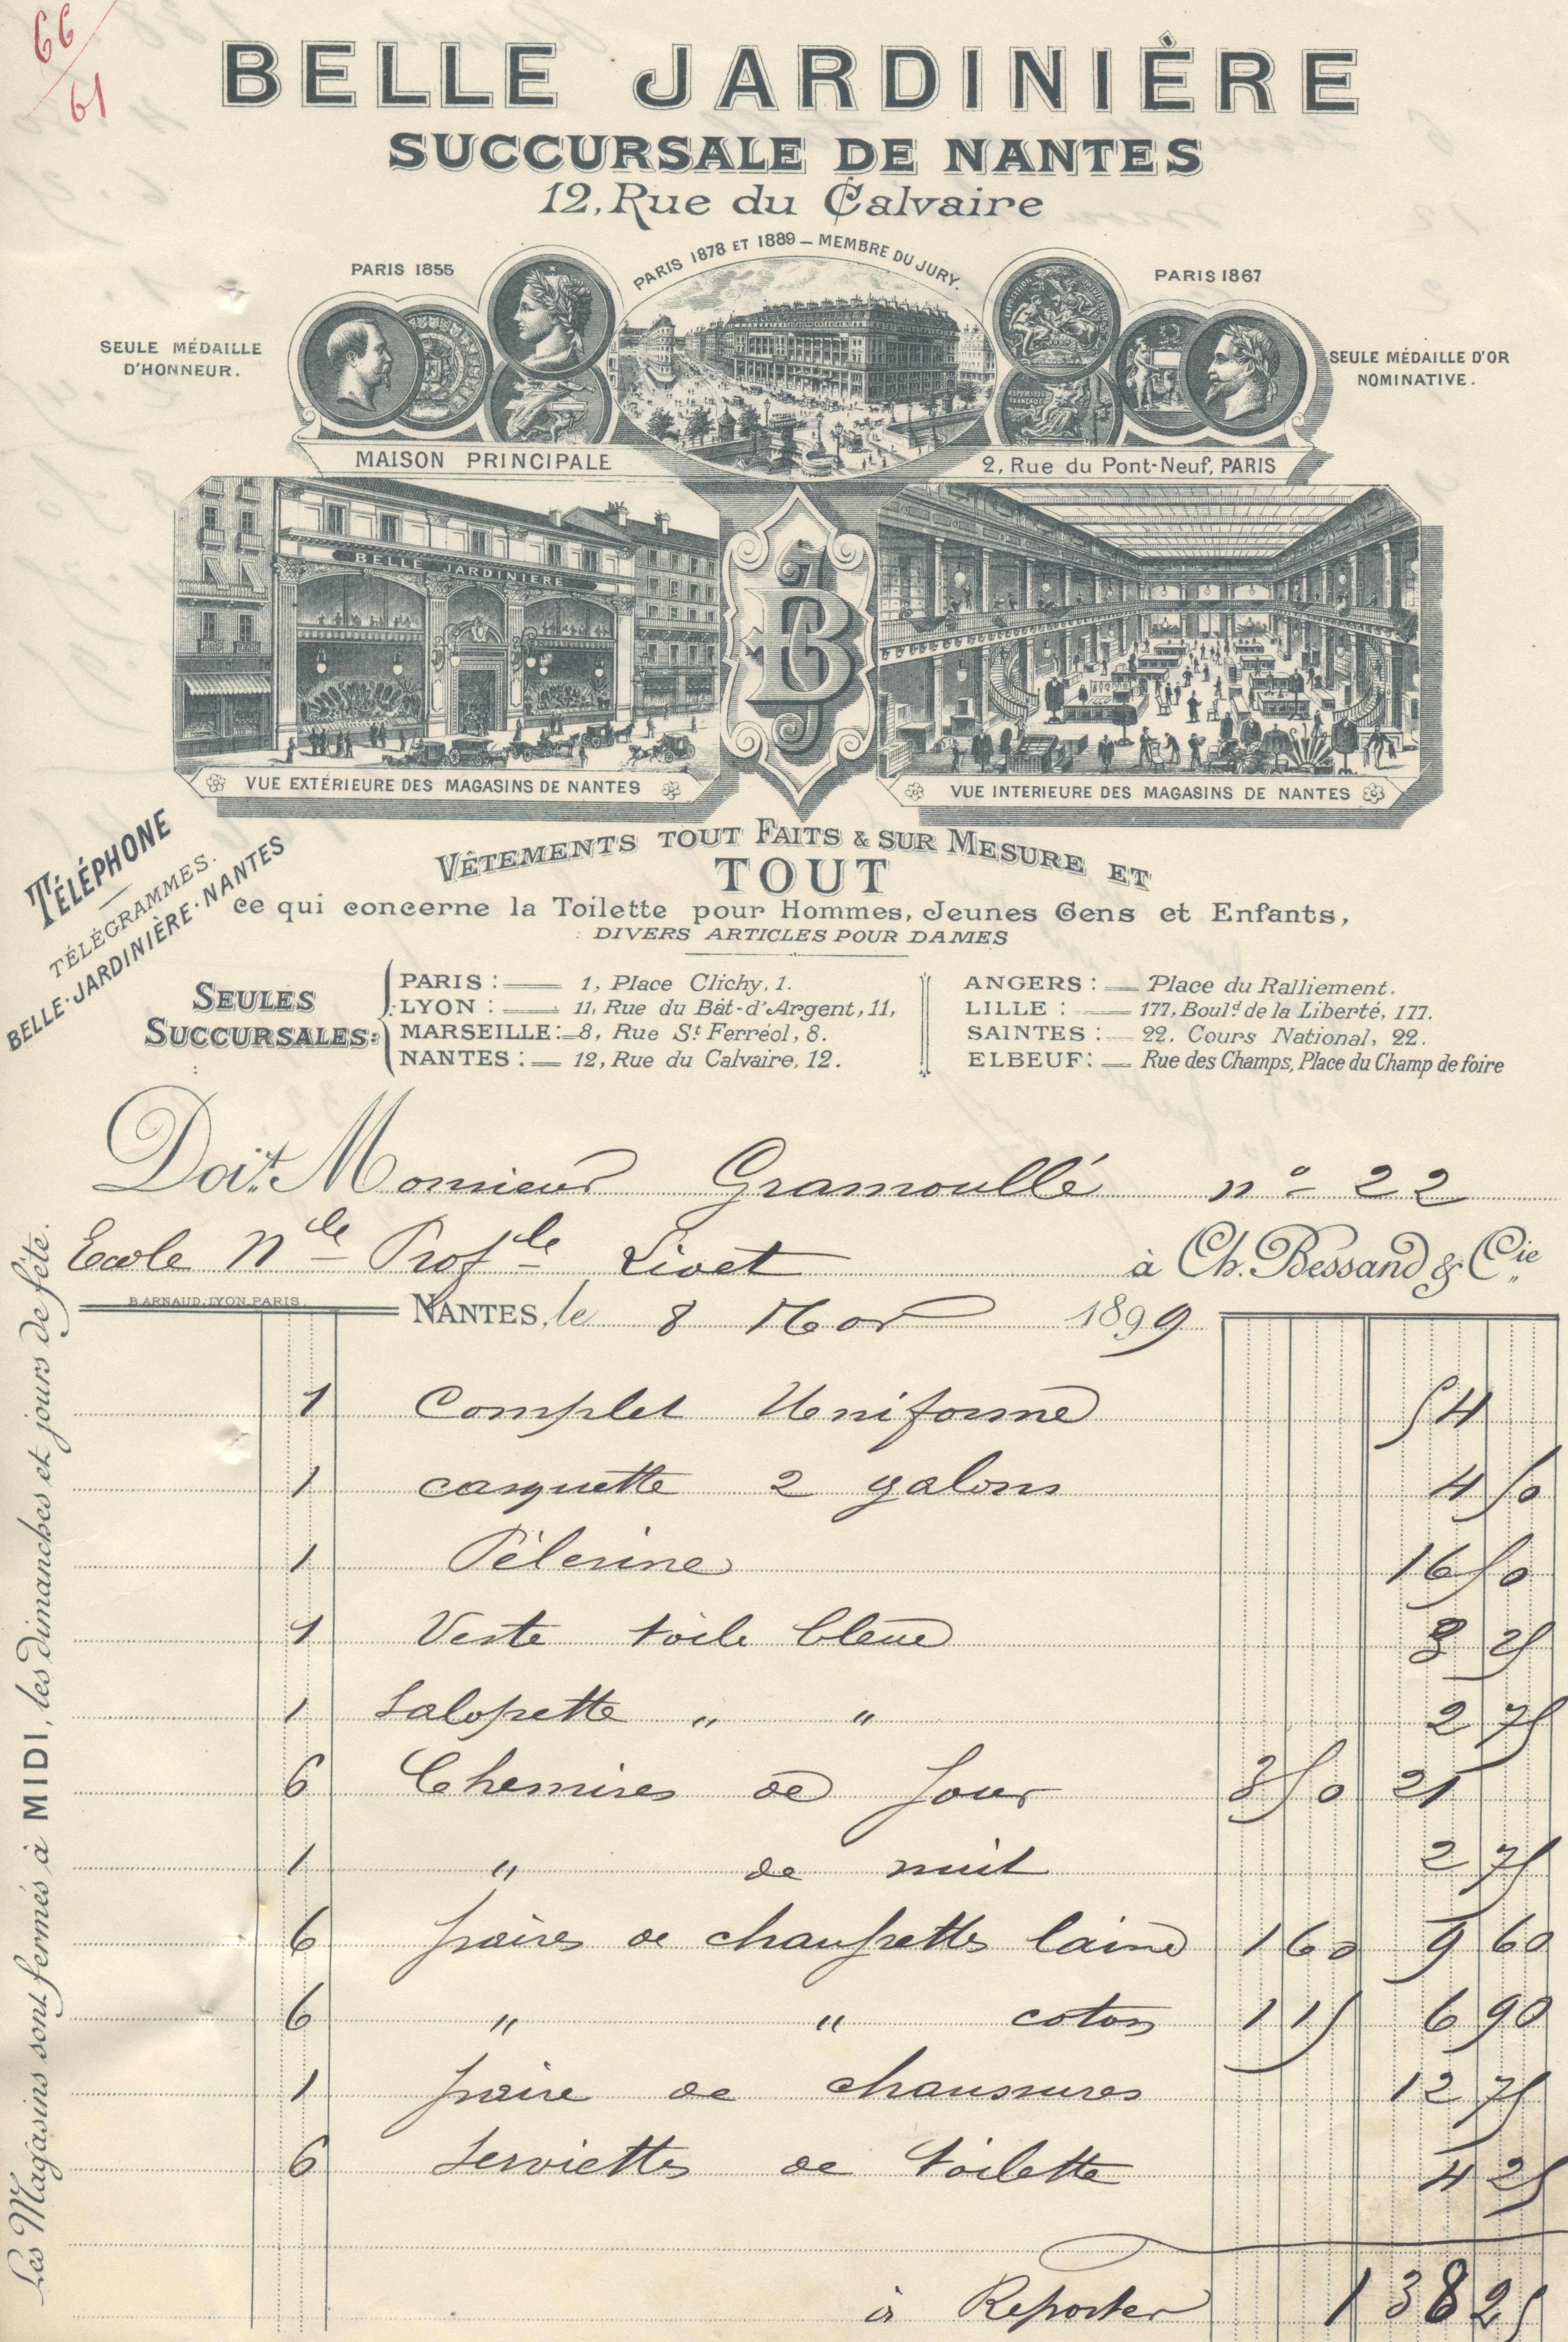 66
61
BELLE JARDINIÈRE
SUCCURSALE DE NANTES
12, Rue du Calvaire
PARIS 1855
PARIS 1878 ET 1889 — MEMBRE DU JURY.
PARIS 1867
SEULE MÉDAILLE D'HONNEUR.
SEULE MÉDAILLE D'OR NOMINATIVE.
MAISON PRINCIPALE
2, Rue du Pont-Neuf, PARIS
BELLE JARDINIERE
BJ
VUE EXTÉRIEURE DES MAGASINS DE NANTES
VUE INTERIEURE DES MAGASINS DE NANTES
TÉLÉPHONE
TÉLÉGRAMMES.
BELLE·JARDINIÈRE·NANTES
VÊTEMENTS TOUT FAITS & SUR MESURE ET
TOUT
ce qui concerne la Toilette pour Hommes, Jeunes Gens et Enfants,
DIVERS ARTICLES POUR DAMES
SEULES SUCCURSALES:
PARIS : — 1, Place Clichy, 1.
LYON : — 11, Rue du Bât-d'Argent, 11,
MARSEILLE: — 8, Rue St Ferréol, 8.
NANTES : — 12, Rue du Calvaire, 12.
ANGERS : — Place du Ralliement.
LILLE : — 177, Bould de la Liberté, 177.
SAINTES : — 22. Cours National, 22.
ELBEUF: — Rue des Champs, Place du Champ de foire
Doit Monsieur Gramoullé n° 22
Ecole Nle Profle Livet à Ch. Bessand & Cie
B. ARNAUD, LYON-PARIS.
NANTES, le 8 Mar 1899
1 Complet Uniforme 54
1 casquette 2 galons 4 50
1 Pélerine 16 50
1 Veste toile bleue 3 25
1 Salopette " " 2 75
6 Chemises de Jour 3 50 21
1 " de nuit 2 75
6 paires de chaussettes laine 1 60 9 60
6 " " coton 1 15 6 90
1 paire de chaussures 12 75
6 Serviettes de toilette 4 25
à Reporter 138 25
Les Magasins sont fermés à MIDI, les dimanches et jours de fête.